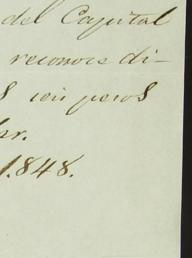 del Capital
reconoce di-
seis pesos
br.
1.848.